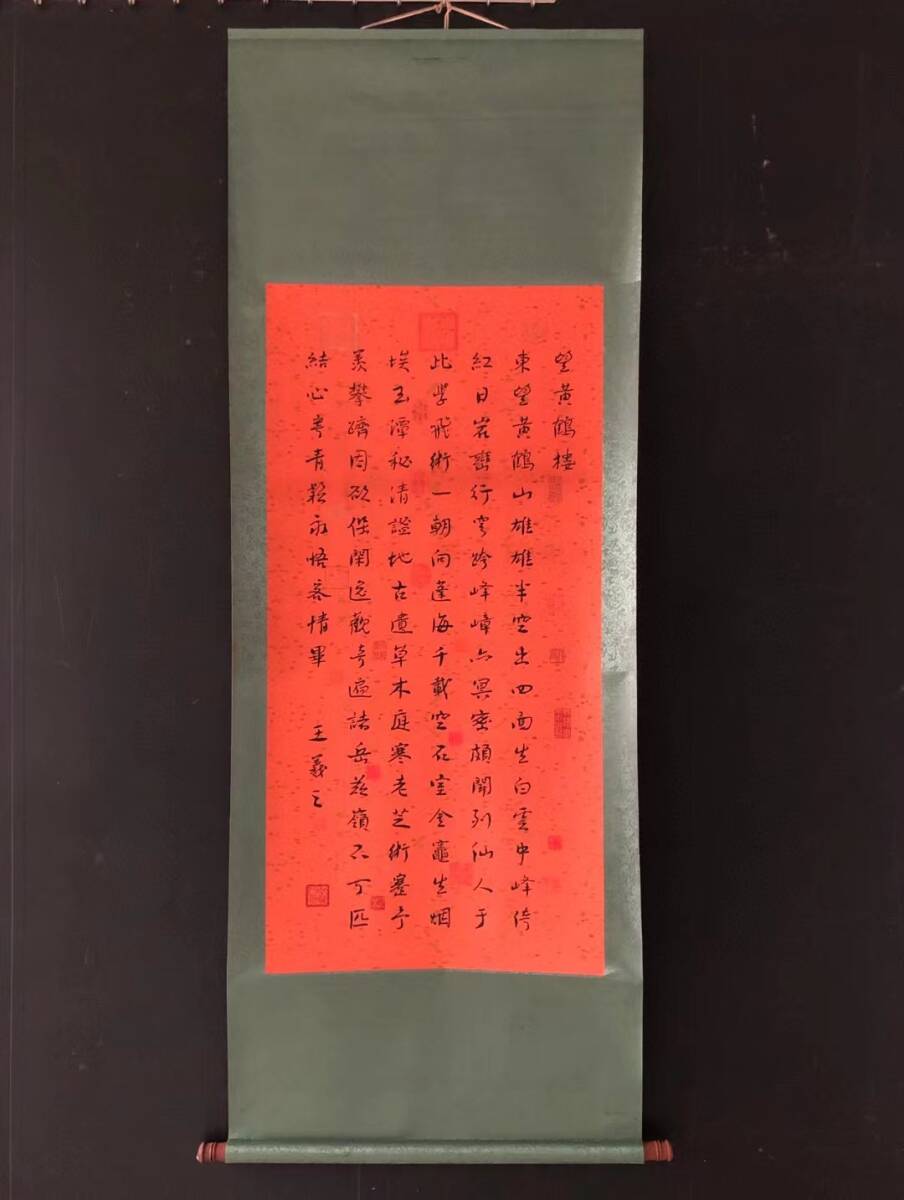 望黄鶴樓
東望黄鶴山雄雄半空出四面生白雲中峰倚
紅日岩巒行穹跨峰嶂亦冥密頗聞列仙人于
此學飛術一朝向蓬海千載空石室金竈生烟
埃玉潭秘清謐地古遺草木庭寒老芝術蹇予
羨攀躋因欲保閑逸觀奇遍諸岳茲嶺不可匹
結心寄青松永悟客情畢
王羲之